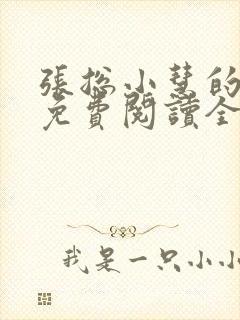 張總小慧的
免費閱讀全
我是一只小小